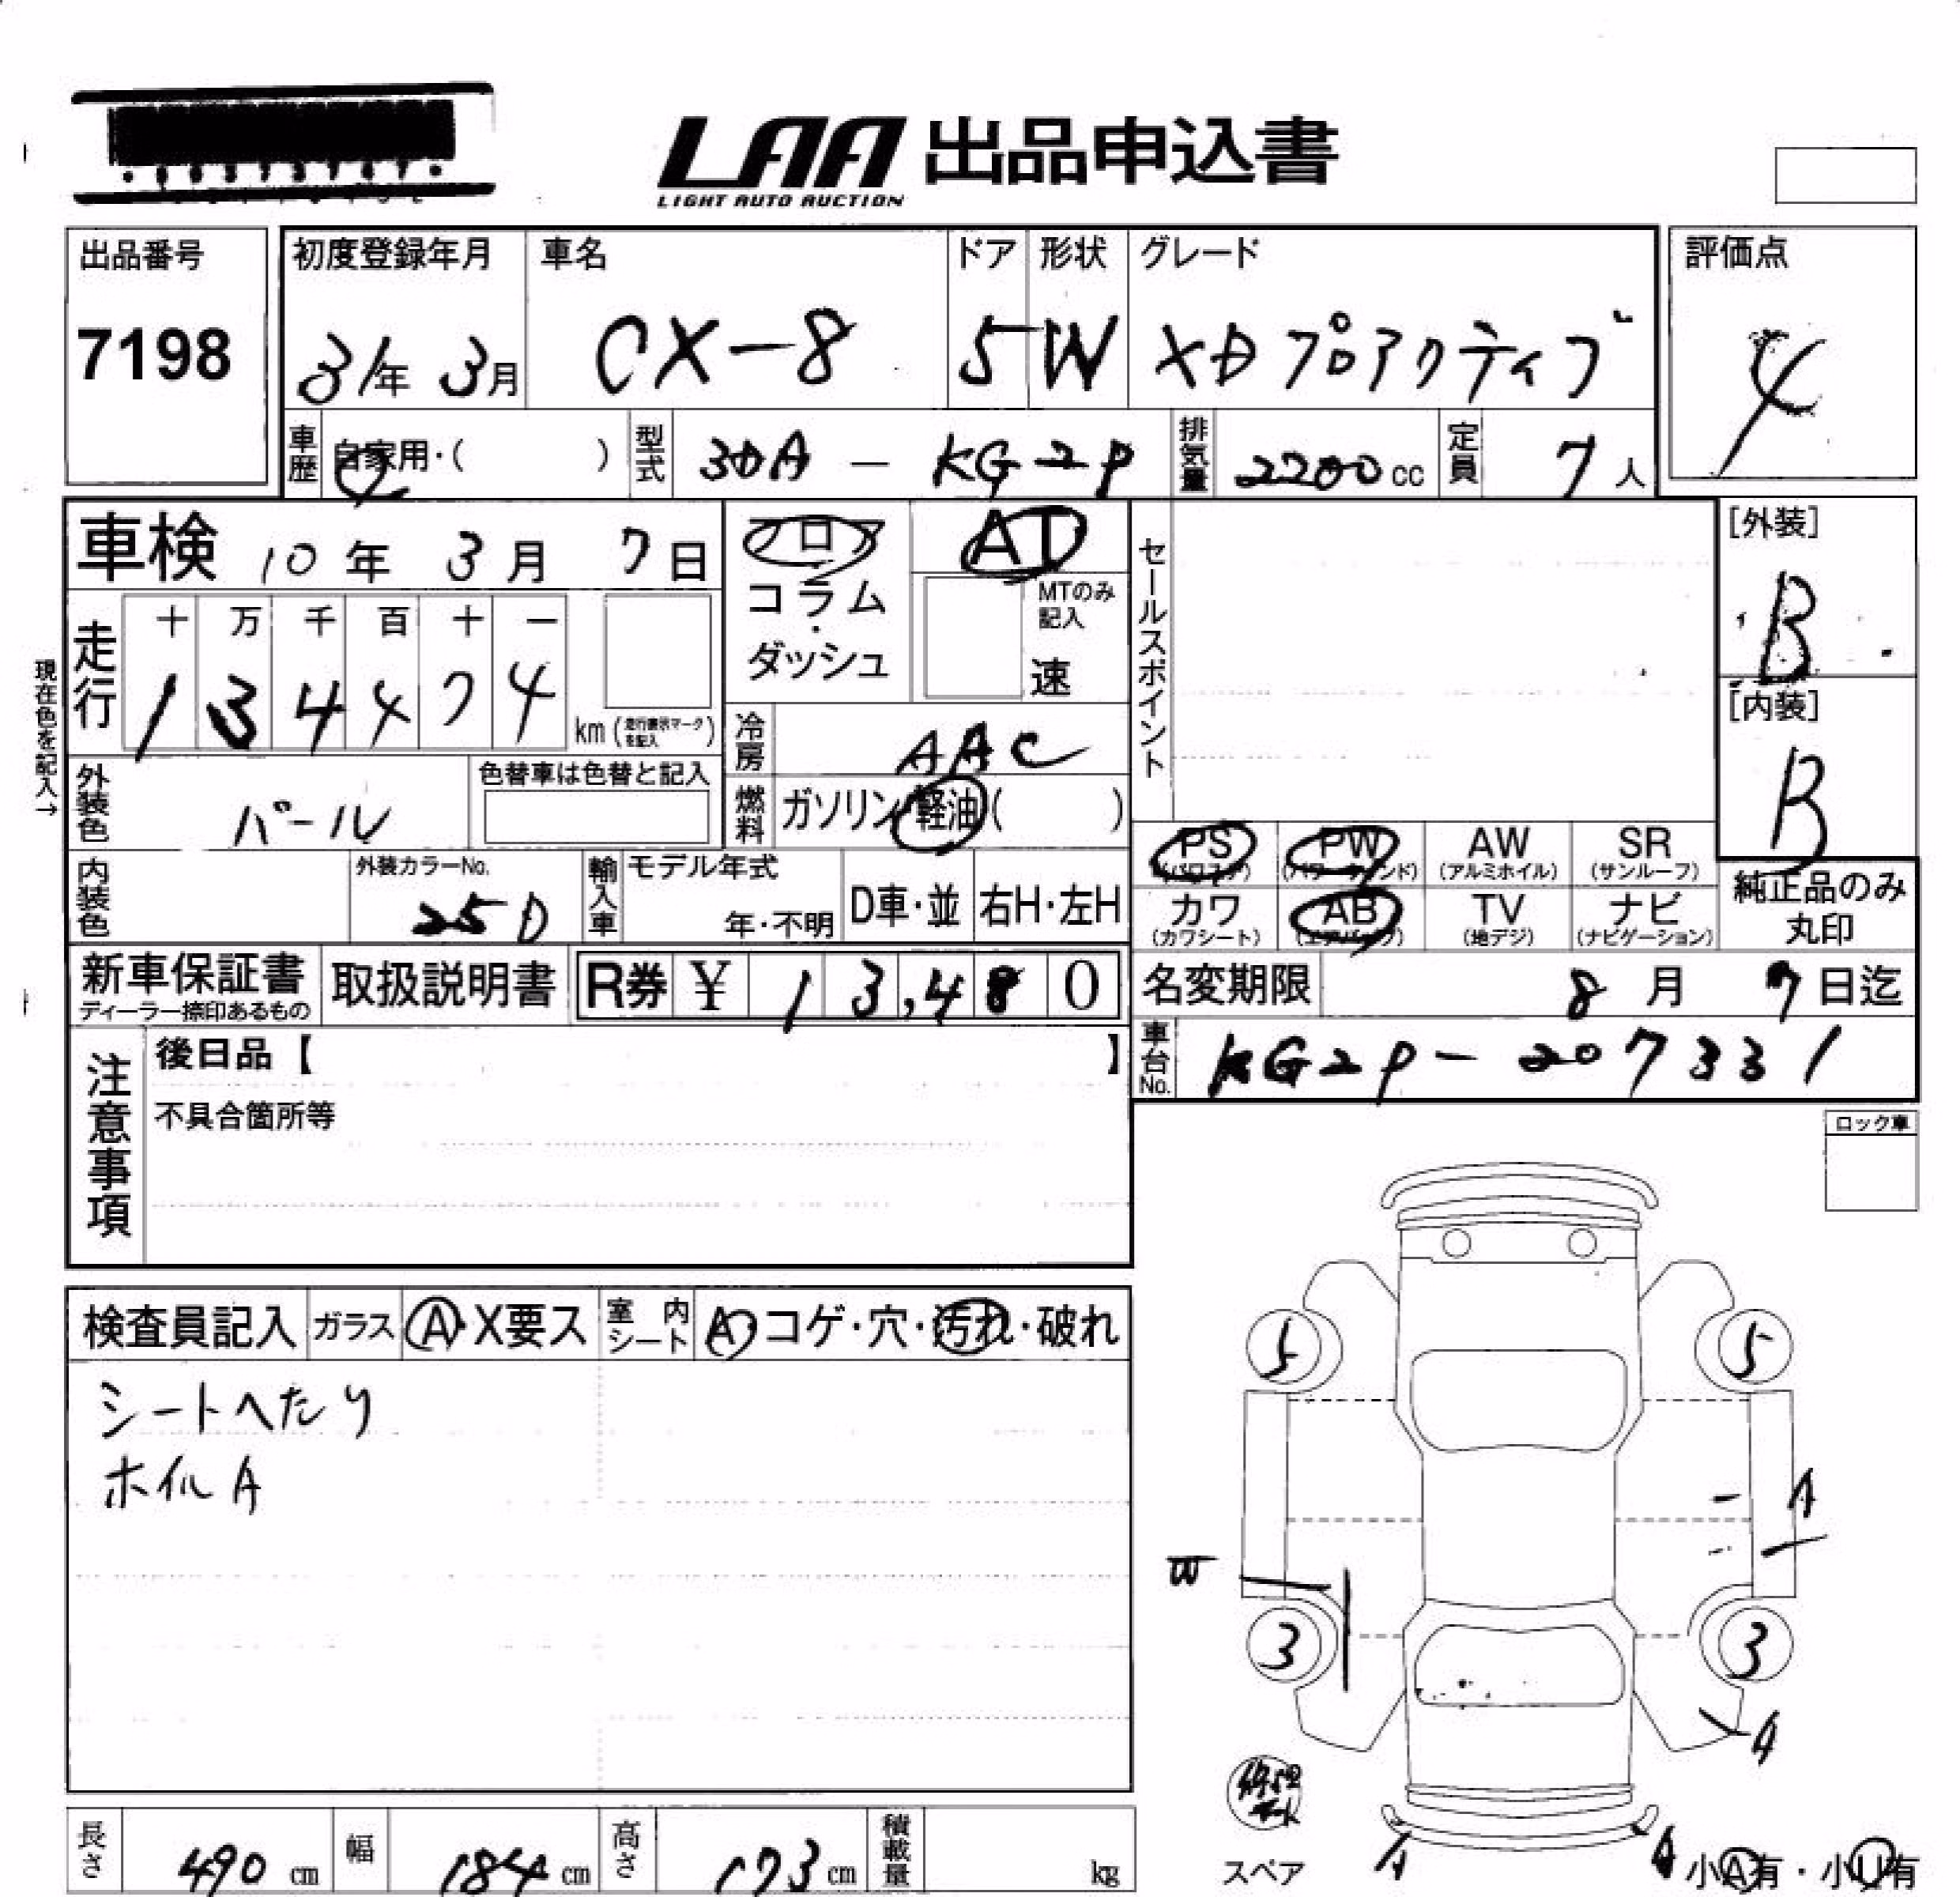 LAA 出品申込書
LIGHT AUTO AUCTION
出品番号
7198
初度登録年月
31年 3月
車名
CX-8
ドア
5
形状
W
グレード
XD プロアクティブ
評価点
4
車歴
自家用・( )
型式
3DA - KG2P
排気量
2200 cc
定員
7人
車検 10年 3月 7日
フロア
・
コラム
・
ダッシュ
AT
MTのみ記入
速
セールスポイント
[外装]
B
[内装]
B
現在色を記入→
走行
十 万 千 百 十 一
1 3 4 4 7 4
km (走行表示マークを記入)
冷房
AAC
外装色
パール
色替車は色替と記入
燃料
ガソリン・軽油( )
PS (パワステ)
PW (パワーウィンド)
AW (アルミホイル)
SR (サンルーフ)
カワ (カワシート)
AB (エアバック)
TV (地デジ)
ナビ (ナビゲーション)
純正品のみ
丸印
内装色
外装カラーNo.
25D
輸入車
モデル年式
年・不明
D車・並
右H・左H
新車保証書
ディーラー捺印あるもの
取扱説明書
R券 ¥ 13,480
名変期限 8月 7日迄
車台No.
KG2P-207331
注意事項
後日品【 】
不具合箇所等
ロック車
検査員記入
ガラス
A・X要ス
室内シート
A・コゲ・穴・汚れ・破れ
シートへたり
ホイルA
5
5
A
W
3
3
A
スペア
A
A
小A有・小U有
長さ
490 cm
幅
184 cm
高さ
173 cm
積載量
kg